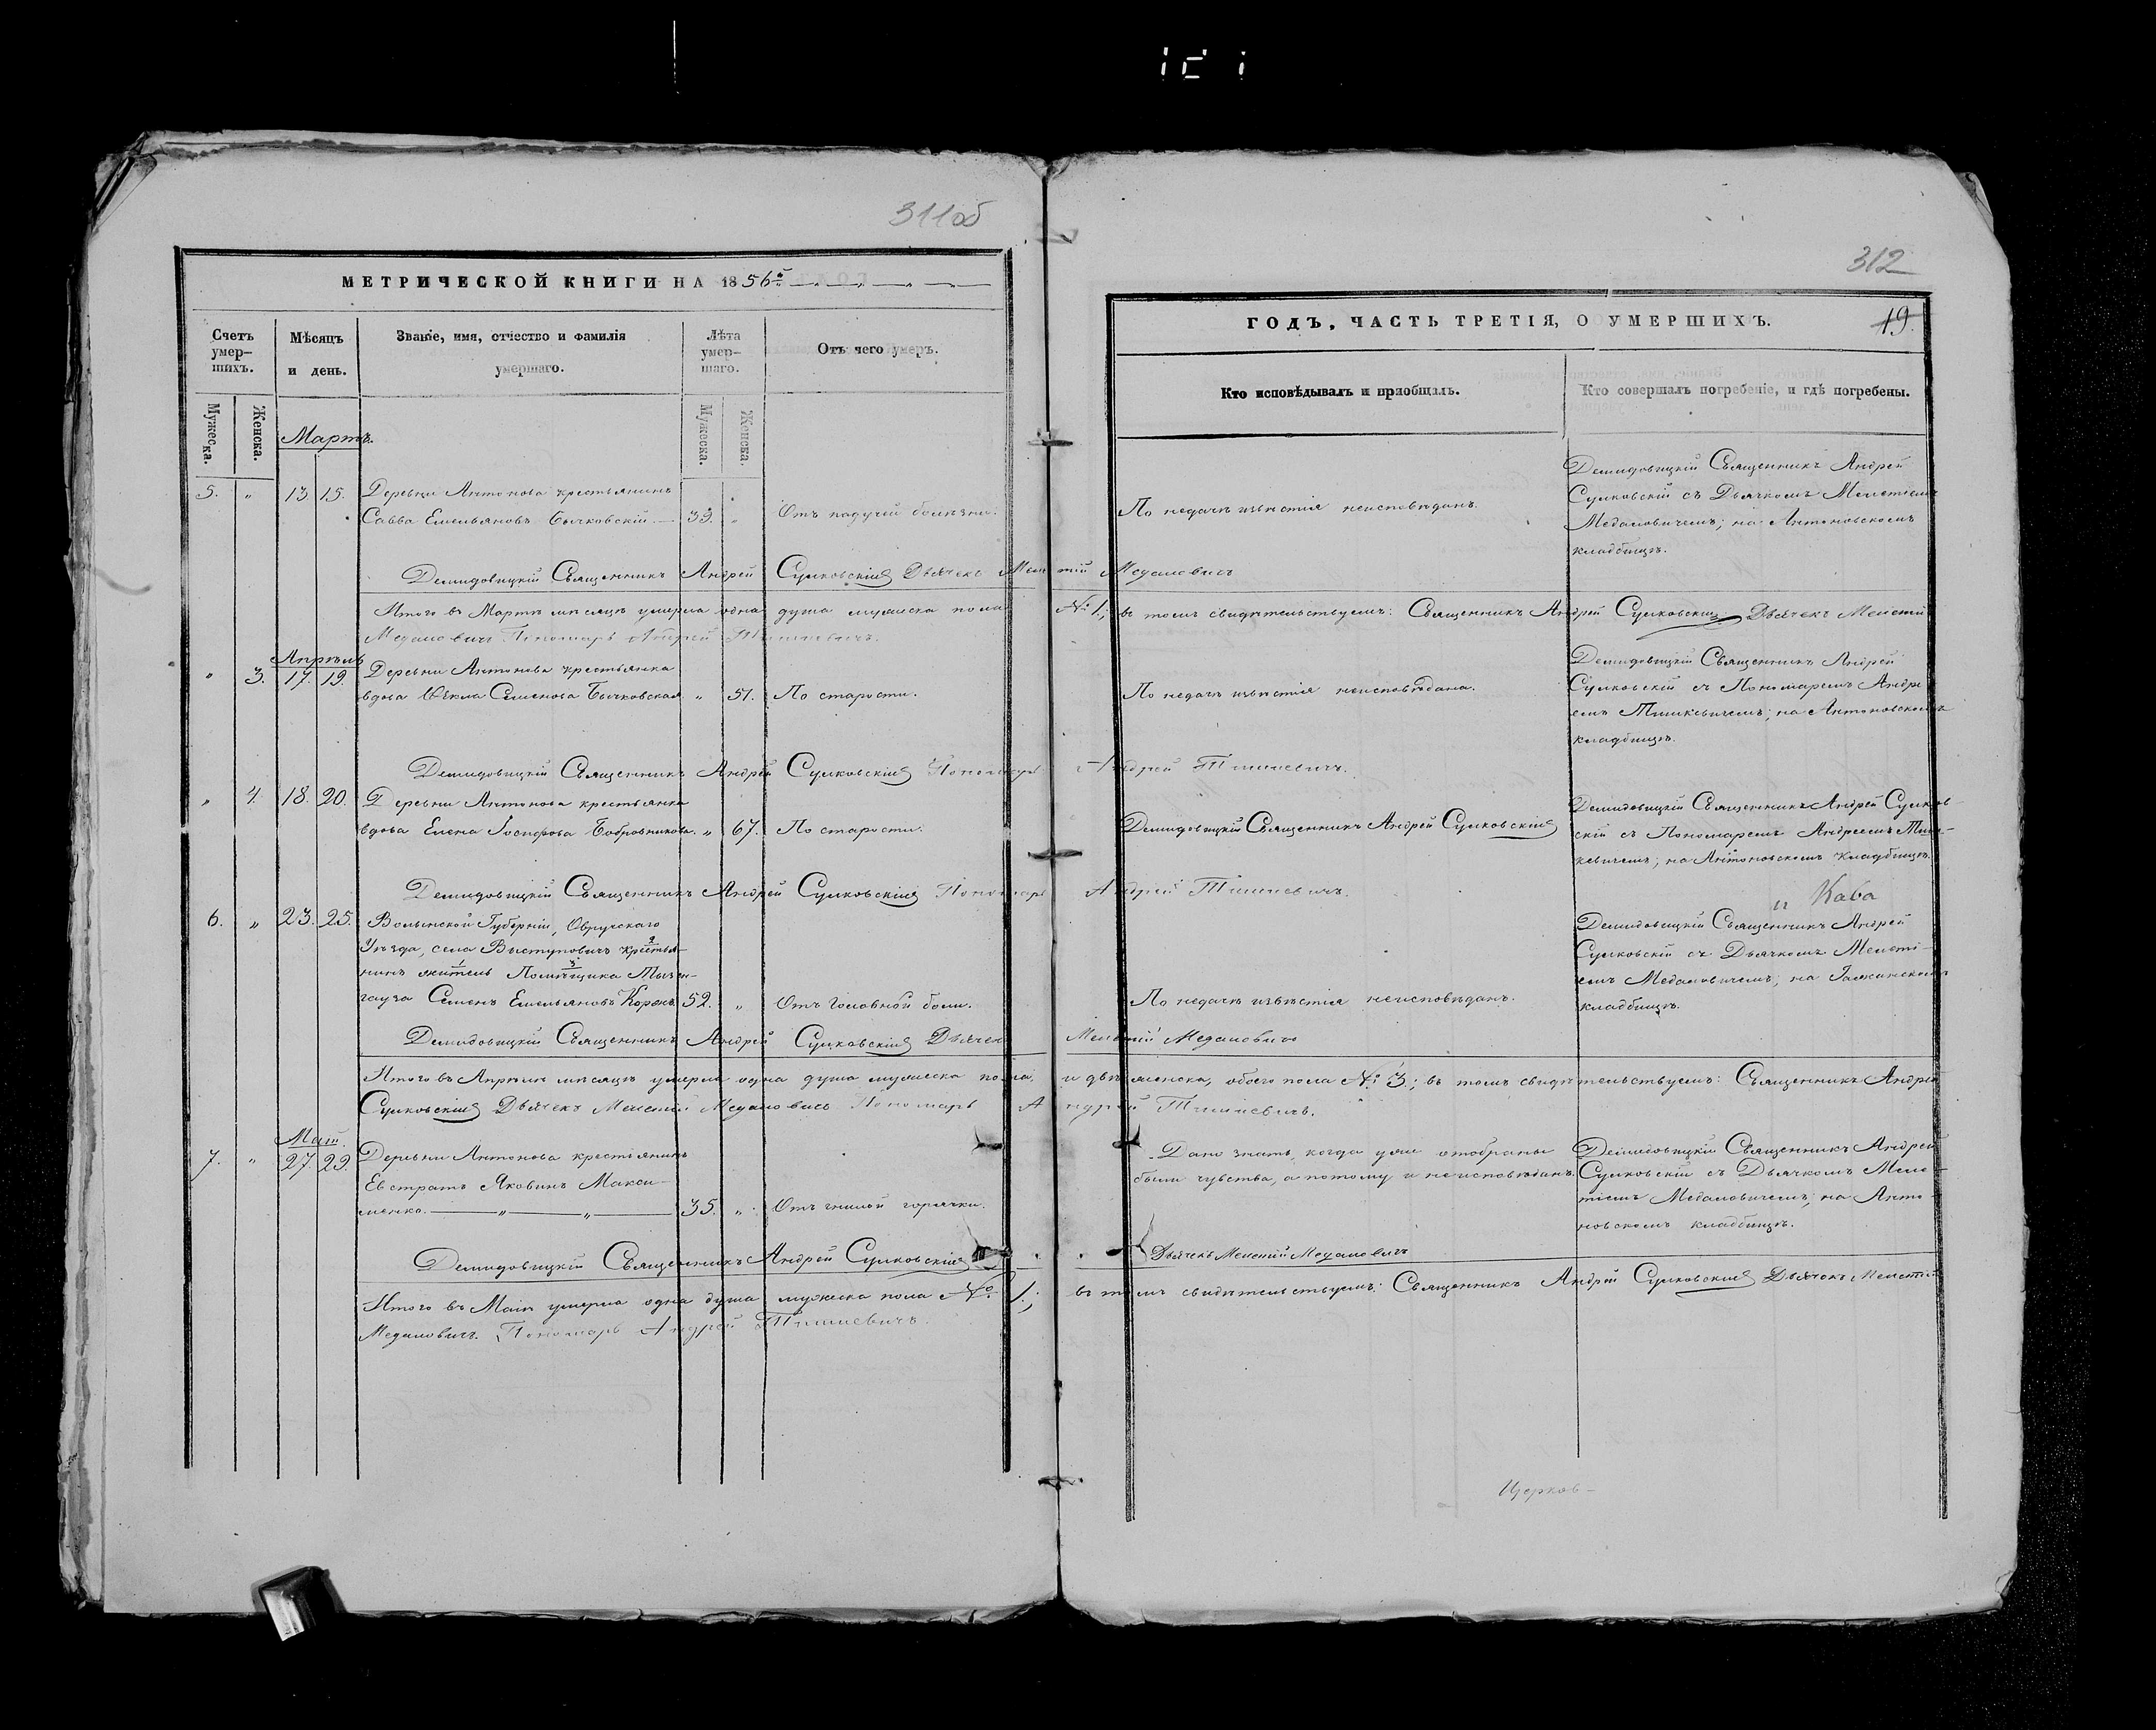 311об
МЕТРИЧЕСКОЙ КНИГИ НА 1856й
Счетъ умер-шихъ.
Мѣсяцъ и день.
Званіе, имя, отчество и фамилія умершаго.
Лѣта умер-шаго.
Отъ чего умеръ.
Мужеска.
Женска.
Мужеска.
Женска.
Мартъ.
5. " 13. 15. Деревни Антонова крестьянинъ
Савва Емельяновъ Бычковскій. — 39. " Отъ падучей болѣзни.
Демидовицкій Священникъ Андрей Сулковскій Дьячекъ Мелетій Медаловичъ
Итого въ Мартѣ мѣсяцѣ умерла одна душа мужеска пола № 1; въ томъ свидѣтельствуемъ: Священникъ Андрей Сулковскій Дьячекъ Мелетій
Медаловичъ Пономарь Андрей Тишкевичъ.
Апрѣль
" 3. 17. 19. Деревни Антонова крестьянка
вдова Ѳекла Семенова Бычковская " 51. По старости.
Демидовицкій Священникъ Андрей Сулковскій Пономарь Андрей Тишкевичъ.
" 4. 18. 20. Деревни Антонова крестьянка
вдова Елена Іосифова Бобровникова. " 67. По старости.
Демидовицкій Священникъ Андрей Сулковскій Пономарь Андрей Тишкевичъ.
6. " 23. 25. Волынской Губерніи, Овручскаго
Уѣзда, села Выступовичъ кре2стья-
нинъ жи1тель Помѣ3щика
Семенъ Емельяновъ Корень 52. " Отъ головной боли.
Демидовицкій Священникъ Андрей Сулковскій Дьячекъ Мелетій Медаловичъ
Итого въ Апрѣлѣ мѣсяцѣ умерла одна душа мужеска пола, и двѣ женска, обоего пола № 3; въ томъ свидѣтельствуемъ: Священникъ Андрей
Сулковскій Дьячекъ Мелетій Медаловичъ Пономарь Андрей Тишкевичъ.
Май.
7. " 27. 29. Деревни Антонова крестіянинъ
Евстратъ Яковинъ Макси-
менко. — " — " — 35. " Отъ гнилой горячки.
Демидовицкій Священникъ Андрей Сулковскій Дьячекъ Мелетій Медаловичъ
Итого въ Маіѣ умерла одна душа мужеска пола № 1.; въ томъ свидѣтельствуемъ: Священникъ Андрей Сулковскій Дьячекъ Мелетій
Медаловичъ. Пономарь Андрей Тишкевичъ.
312
ГОДЪ, ЧАСТЬ ТРЕТІЯ, О УМЕРШИХЪ.
19.
Кто исповѣдывалъ и пріобщалъ.
Кто совершалъ погребеніе, и гдѣ погребены.
По недачѣ извѣстія неисповѣданъ.
Демидовицкій Священникъ Андрей
Сулковскій съ Дьячкомъ Мелетіемъ
Медаловичемъ; на Антоновскомъ
кладбищѣ.
По недачѣ извѣстія неисповѣдана.
Демидовицкій Священникъ Андрей
Сулковскій съ Пономаремъ Андре
емъ Тишкевичемъ; на Антоновскомъ
кладбищѣ.
Демидовицкій Священникъ Андрей Сулковскій
Демидовицкій Священникъ Андрей Сулков-
скій съ Пономаремъ Андреемъ Тиш-
кевичемъ; на Антоновскомъ кладбищѣ.
По недачѣ извѣстія неисповѣданъ.
Демидовицкій Священникъ Андрей
Сулковскій съ Дьячкомъ Мелеті-
емъ Медаловичемъ; на
кладбищѣ.
Дано знать, когда уже отобраны
были чувства, а потому и неисповѣданъ.
Демидовицкій Священникъ Андрей
Сулковскій съ Дьячкомъ Меле-
тіемъ Медаловичемъ; на Анто-
новскомъ кладбищѣ.
Церков-